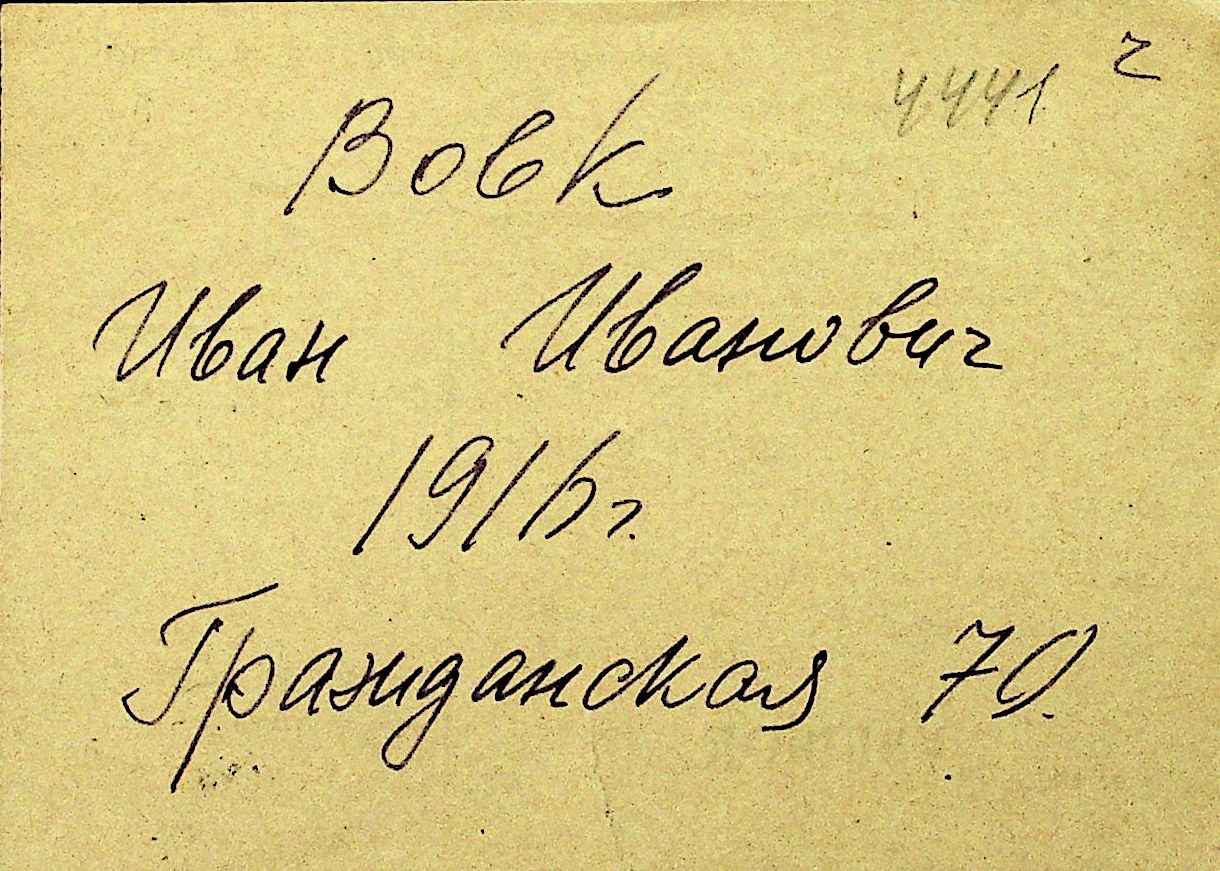 4441 ч
Вовк
Иван Иванович
1916 г.
Гражданская 70.